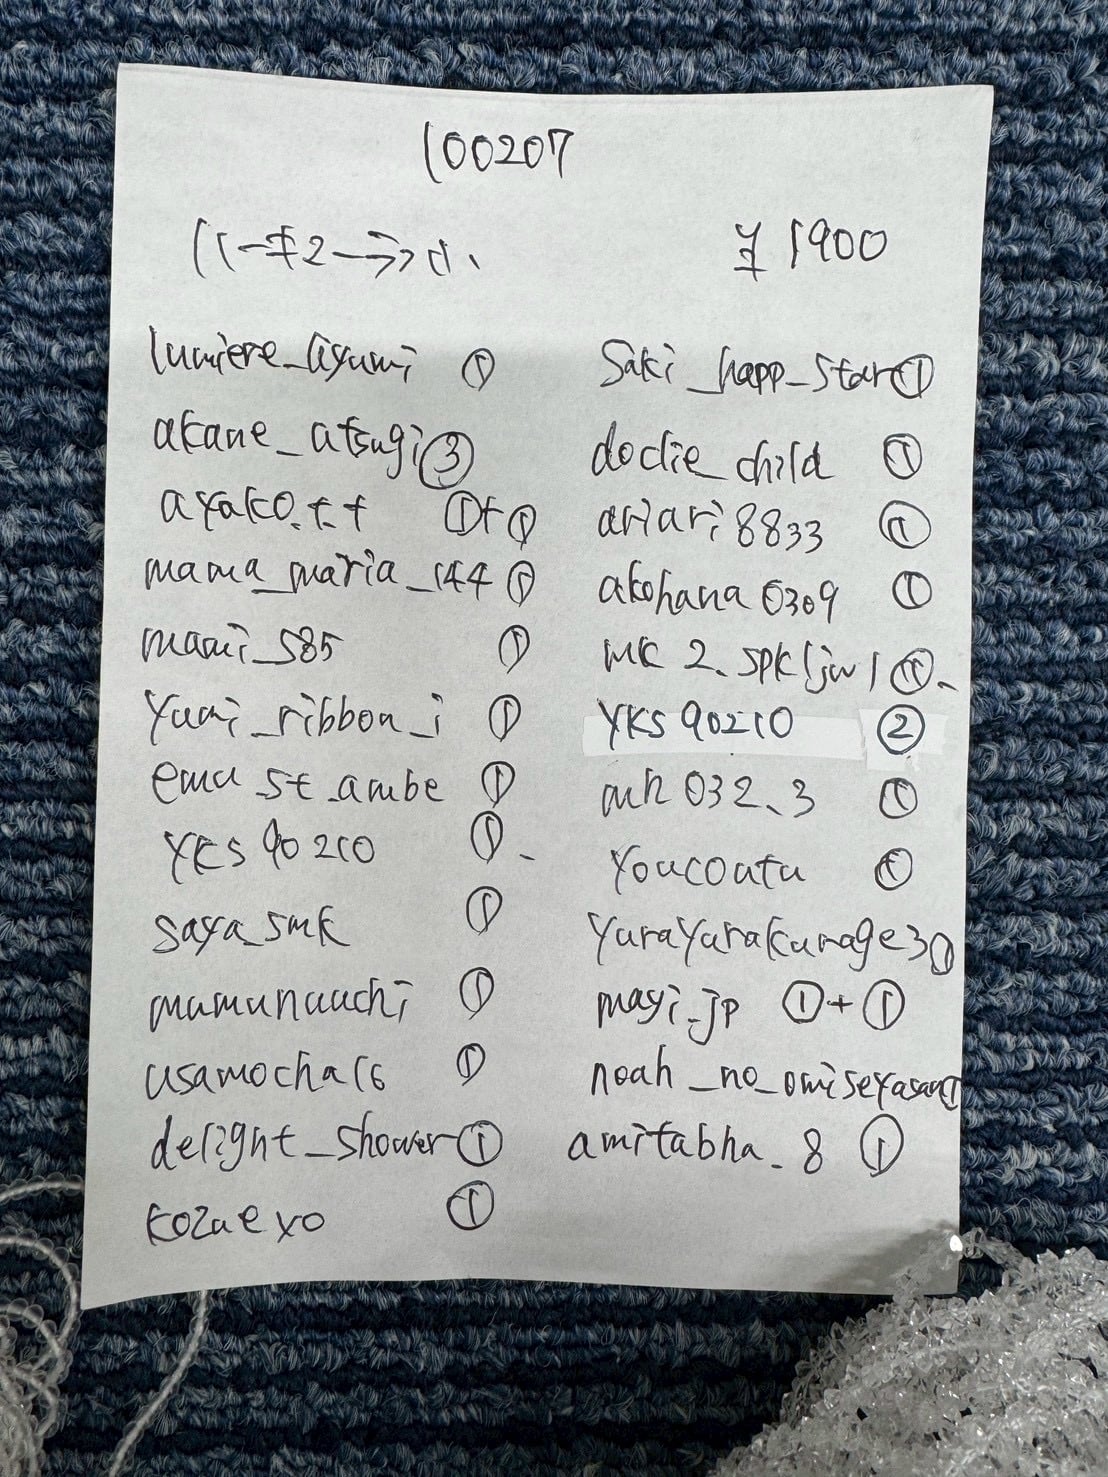 100207
¥1900
lumiere_ayumi ①
akane_atsugi ③
ayako.t.t ①+①
mama_maria_144 ①
mami_585 ①
yumi_ribbon_i ①
emu_st_ambe ①
YKS90210 ①
saya_smk ①
mumunuuchi ①
usamocha16 ①
delight_shower ①
kozuexo ①
Saki_happ_star ①
doclie_child ①
ariari8833 ①
akohana0309 ①
①
YKS90210 ②
mh032_3 ①
Youcoutu ①
YuraYurakurage3 ①
mayi_jp ①+①
noah_no_omiseyasan ①
amitabha_8 ①